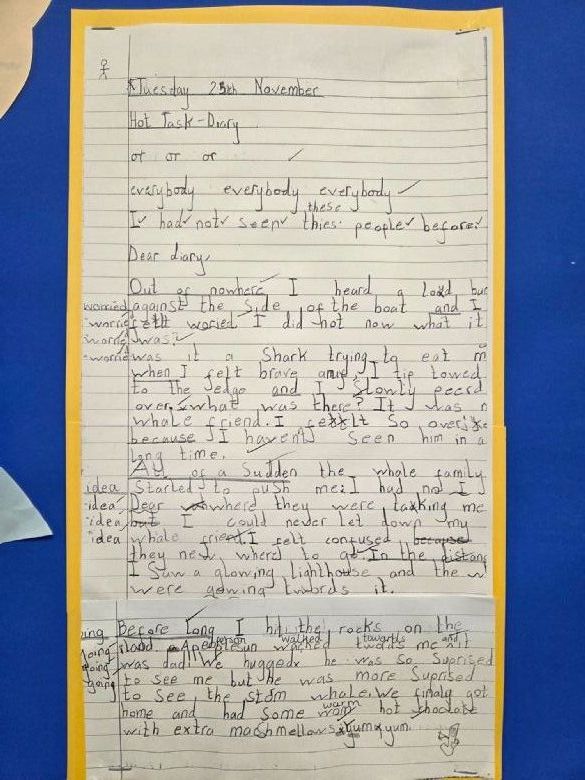 Tuesday 25th November
Hot Task-Diary
or or or
everybody everybody everybody
these
I had not seen thies people before.
Dear diary,
Out of nowhere I heard a load
worried against the Side of the boat and I
worrie felt woried I did not now what it
worrie was?
worrie was it a Shark trying to eat m
when I felt brave I tip towed
to The edge and I Slowly peerd
over. what was there? It was
whale friend. I felt So
because I havent Seen him in a
long time.
All of a Sudden the whale family
idea Started to push me. I had no I
idea Dear where they were taking me
idea but I could never let down my
idea whale friend I felt confused because
they new where to go. In the
I Saw a glowing lighthouse and the w
were gowing twords it.
Before Long I hit the rocks on the
person walked towards and
going iland. A me it
going was dad! We hugged he was so Suprised
going to see me but he was more Suprised
to See the whale. We finaly got
warm
home and had Some hot choclate
with extra machmellows yum yum.